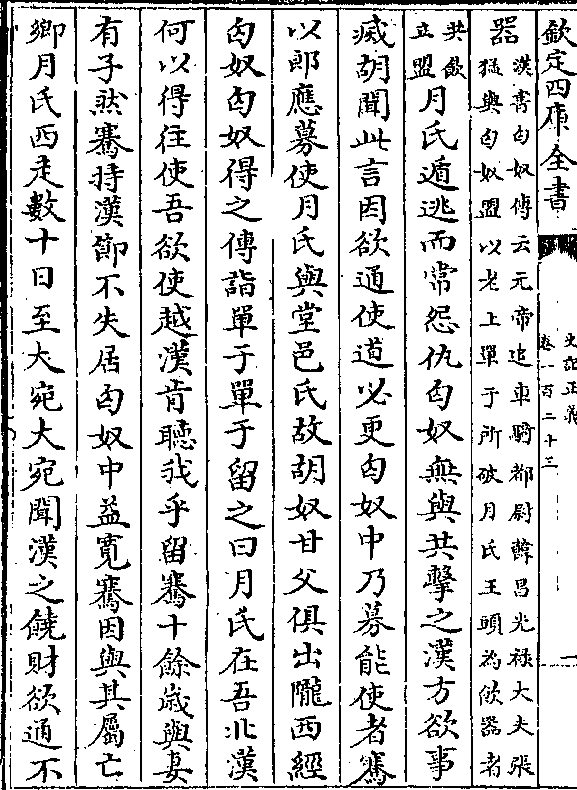 欽定四庫全書
史記正義
卷一百二十三
一
器
漢書匈奴傳云元帝遣車騎都尉韓昌光祿大夫張
猛與匈奴盟以老上單于所破月氏王頭為飲器者
共飲
立盟
月氏遁逃而常怨仇匈奴無與共擊之漢方欲事
滅胡聞此言因欲通使道必更匈奴中乃募能使者騫
以郎應募使月氏與堂邑氏故胡奴甘父俱出隴西經
匈奴匈奴得之傳詣單于單于留之曰月氏在吾北漢
何以得往使吾欲使越漢肯聽我乎留騫十餘歲與妻
有子然騫持漢節不失居匈奴中益寛騫因與其屬亡
鄉月氏西走數十日至大宛大宛聞漢之饒財欲通不